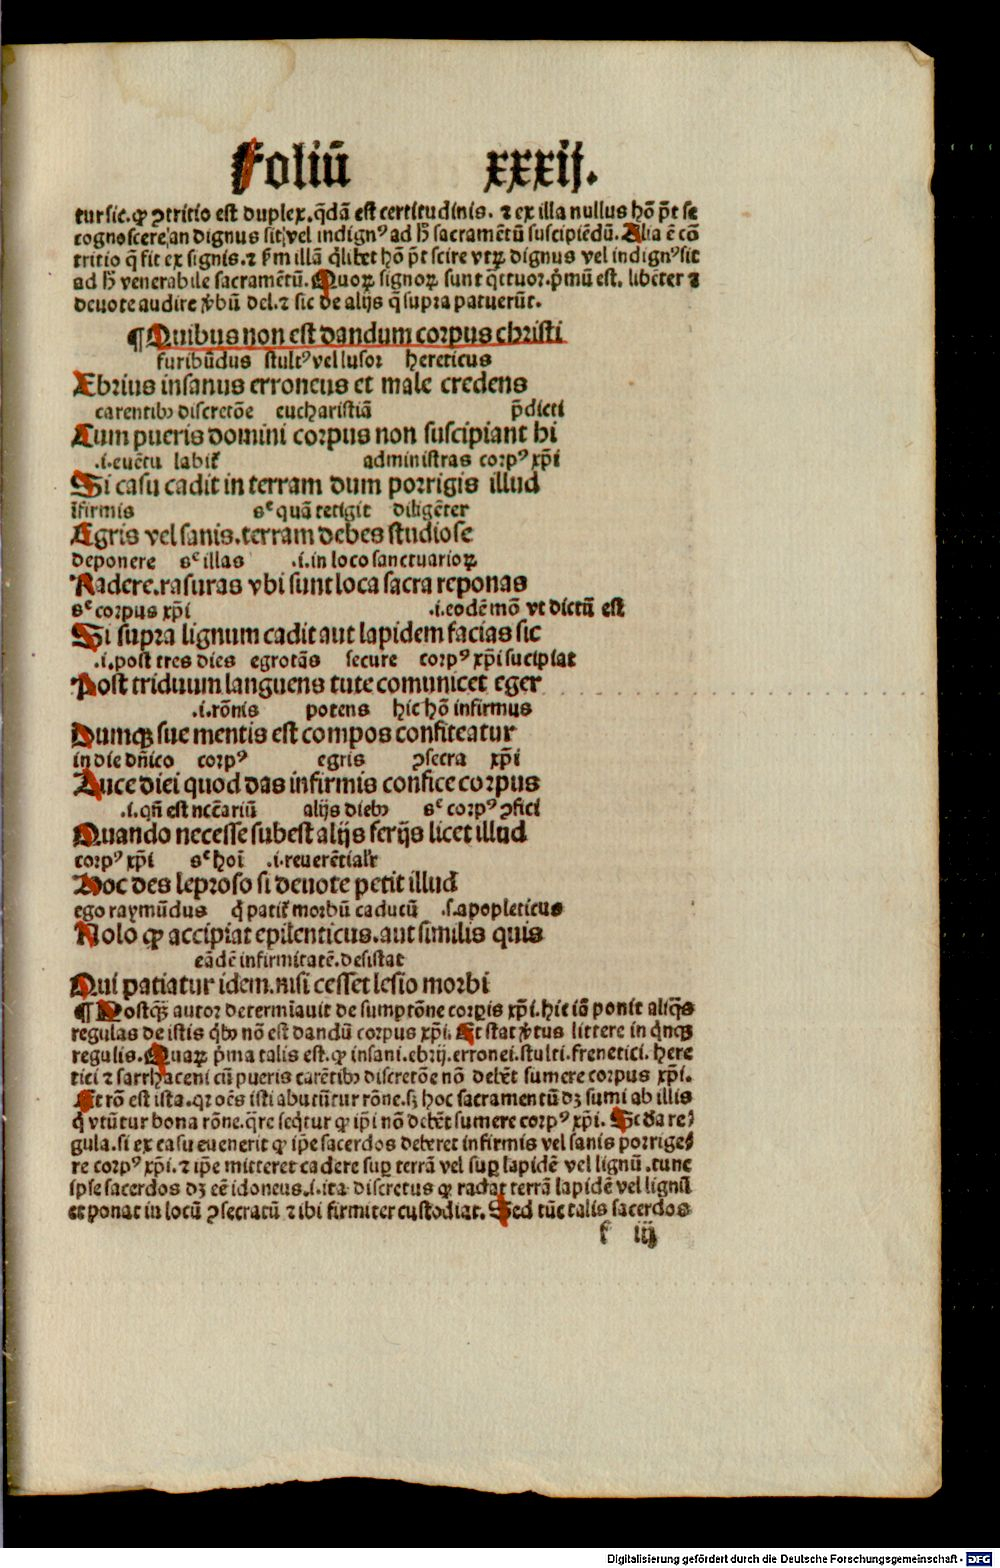 Foliū xxxij.
tur sic. ꝙ ꝯtritio est duplex. q̄dā est certitudinis. ⁊ ex illa nullus hō p̄t se
cognoscere an dignus sit vel indignꝰ ad h̄ sacramētū suscipiēdū. Alia ē cō
tritio q̄ fit ex signis. ⁊ illā hō p̄t scire vtꝝ dignus vel indignꝰ sit
ad h̄ venerabile sacramētū. Quoꝝ signoꝝ sunt p̄mū est. libēter ⁊
deuote audire dei. ⁊ sic de alijs q̄ supra patuerūt.
¶ Quibus non est dandum corpus christi
furibūdus stultꝰ vel lusor hereticus
Ebrius insanus erroneus et male credens
carentibꝫ discretōe eucharistiā p̄dicti
Cum pueris domini corpus non suscipiant hi
.i. euētu administras corpꝰ xp̄i
Si casu cadit in terram dum porrigis illud
īfirmis quā tetigit diligēter
Egris vel sanis. terram debes studiose
deponere illas .i. in loco sanctuarioꝝ
Radere. rasuras vbi sunt loca sacra reponas
corpus xp̄i .i. eodē mō vt dictū est
Si supra lignum cadit aut lapidem facias sic
.i. post tres dies egrotās secure corpꝰ xp̄i sucipiat
Post triduum languens tute comunicet eger
.i. rōnis potens hic hō infirmus
Dumqꝫ sue mentis est compos confiteatur
in die dn̄ico corpꝰ egris ꝯsecra xp̄i
Luce diei quod das infirmis confice corpus
.i. qn̄ est ncc̄ariū alijs diebꝫ corpꝰ ꝯfici
Quando necesse subest alijs ferijs licet illud
corpꝰ xp̄i hoī
Hoc des leproso si deuote petit illud
ego raymūdus morbū caducū .s. apopleticus
Nolo ꝙ accipiat epilenticus. aut similis quis
eādē infirmitatē. desistat
Qui patiatur idem. nisi cesset lesio morbi
¶ Postqꝫ autor determīauit de sumptōne corꝑis xp̄i. hic iā ponit aliq̄s
regulas de istis qͥbꝫ nō est dandū corpus xp̄i. Et stat littere in
regulis. Quaꝝ p̄ma talis est. ꝙ insani. ebrij. erronei. stulti. frenetici. here
tici ⁊ sarrhaceni cū pueris carētibꝫ discretōe nō debēt sumere corpus xp̄i.
Et rō est ista. qꝛ oēs isti abutūtur rōne. sꝫ hoc sacramentū dꝫ sumi ab illis
qͥ vtūtur bona rōne. q̄re seqͥtur ꝙ ip̄i nō debēt sumere corpꝰ xp̄i. Scd̄a re⸗
gula. si ex casu euenerit ꝙ ip̄e sacerdos deberet infirmis vel sanis porrige⸗
re corpꝰ xp̄i. ⁊ ip̄e mitteret cadere suꝑ terrā vel suꝑ lapidē vel lignū. tunc
ipse sacerdos dꝫ eē idoneus. i. ita discretus ꝙ radat terrā lapidē vel lignū
et ponat in locū ꝯsecratū ⁊ ibi firmiter custodiat. Sed tūc talis sacerdos
f iij
Digitalisierung gefördert durch die Deutsche Forschungsgemeinschaft - DFG